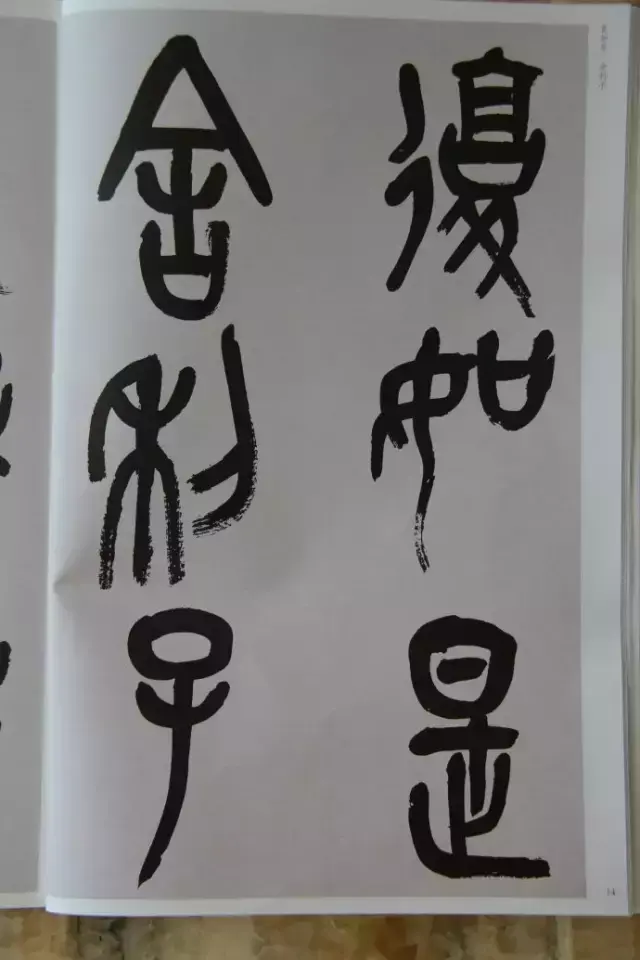 復如是
舍利子
14